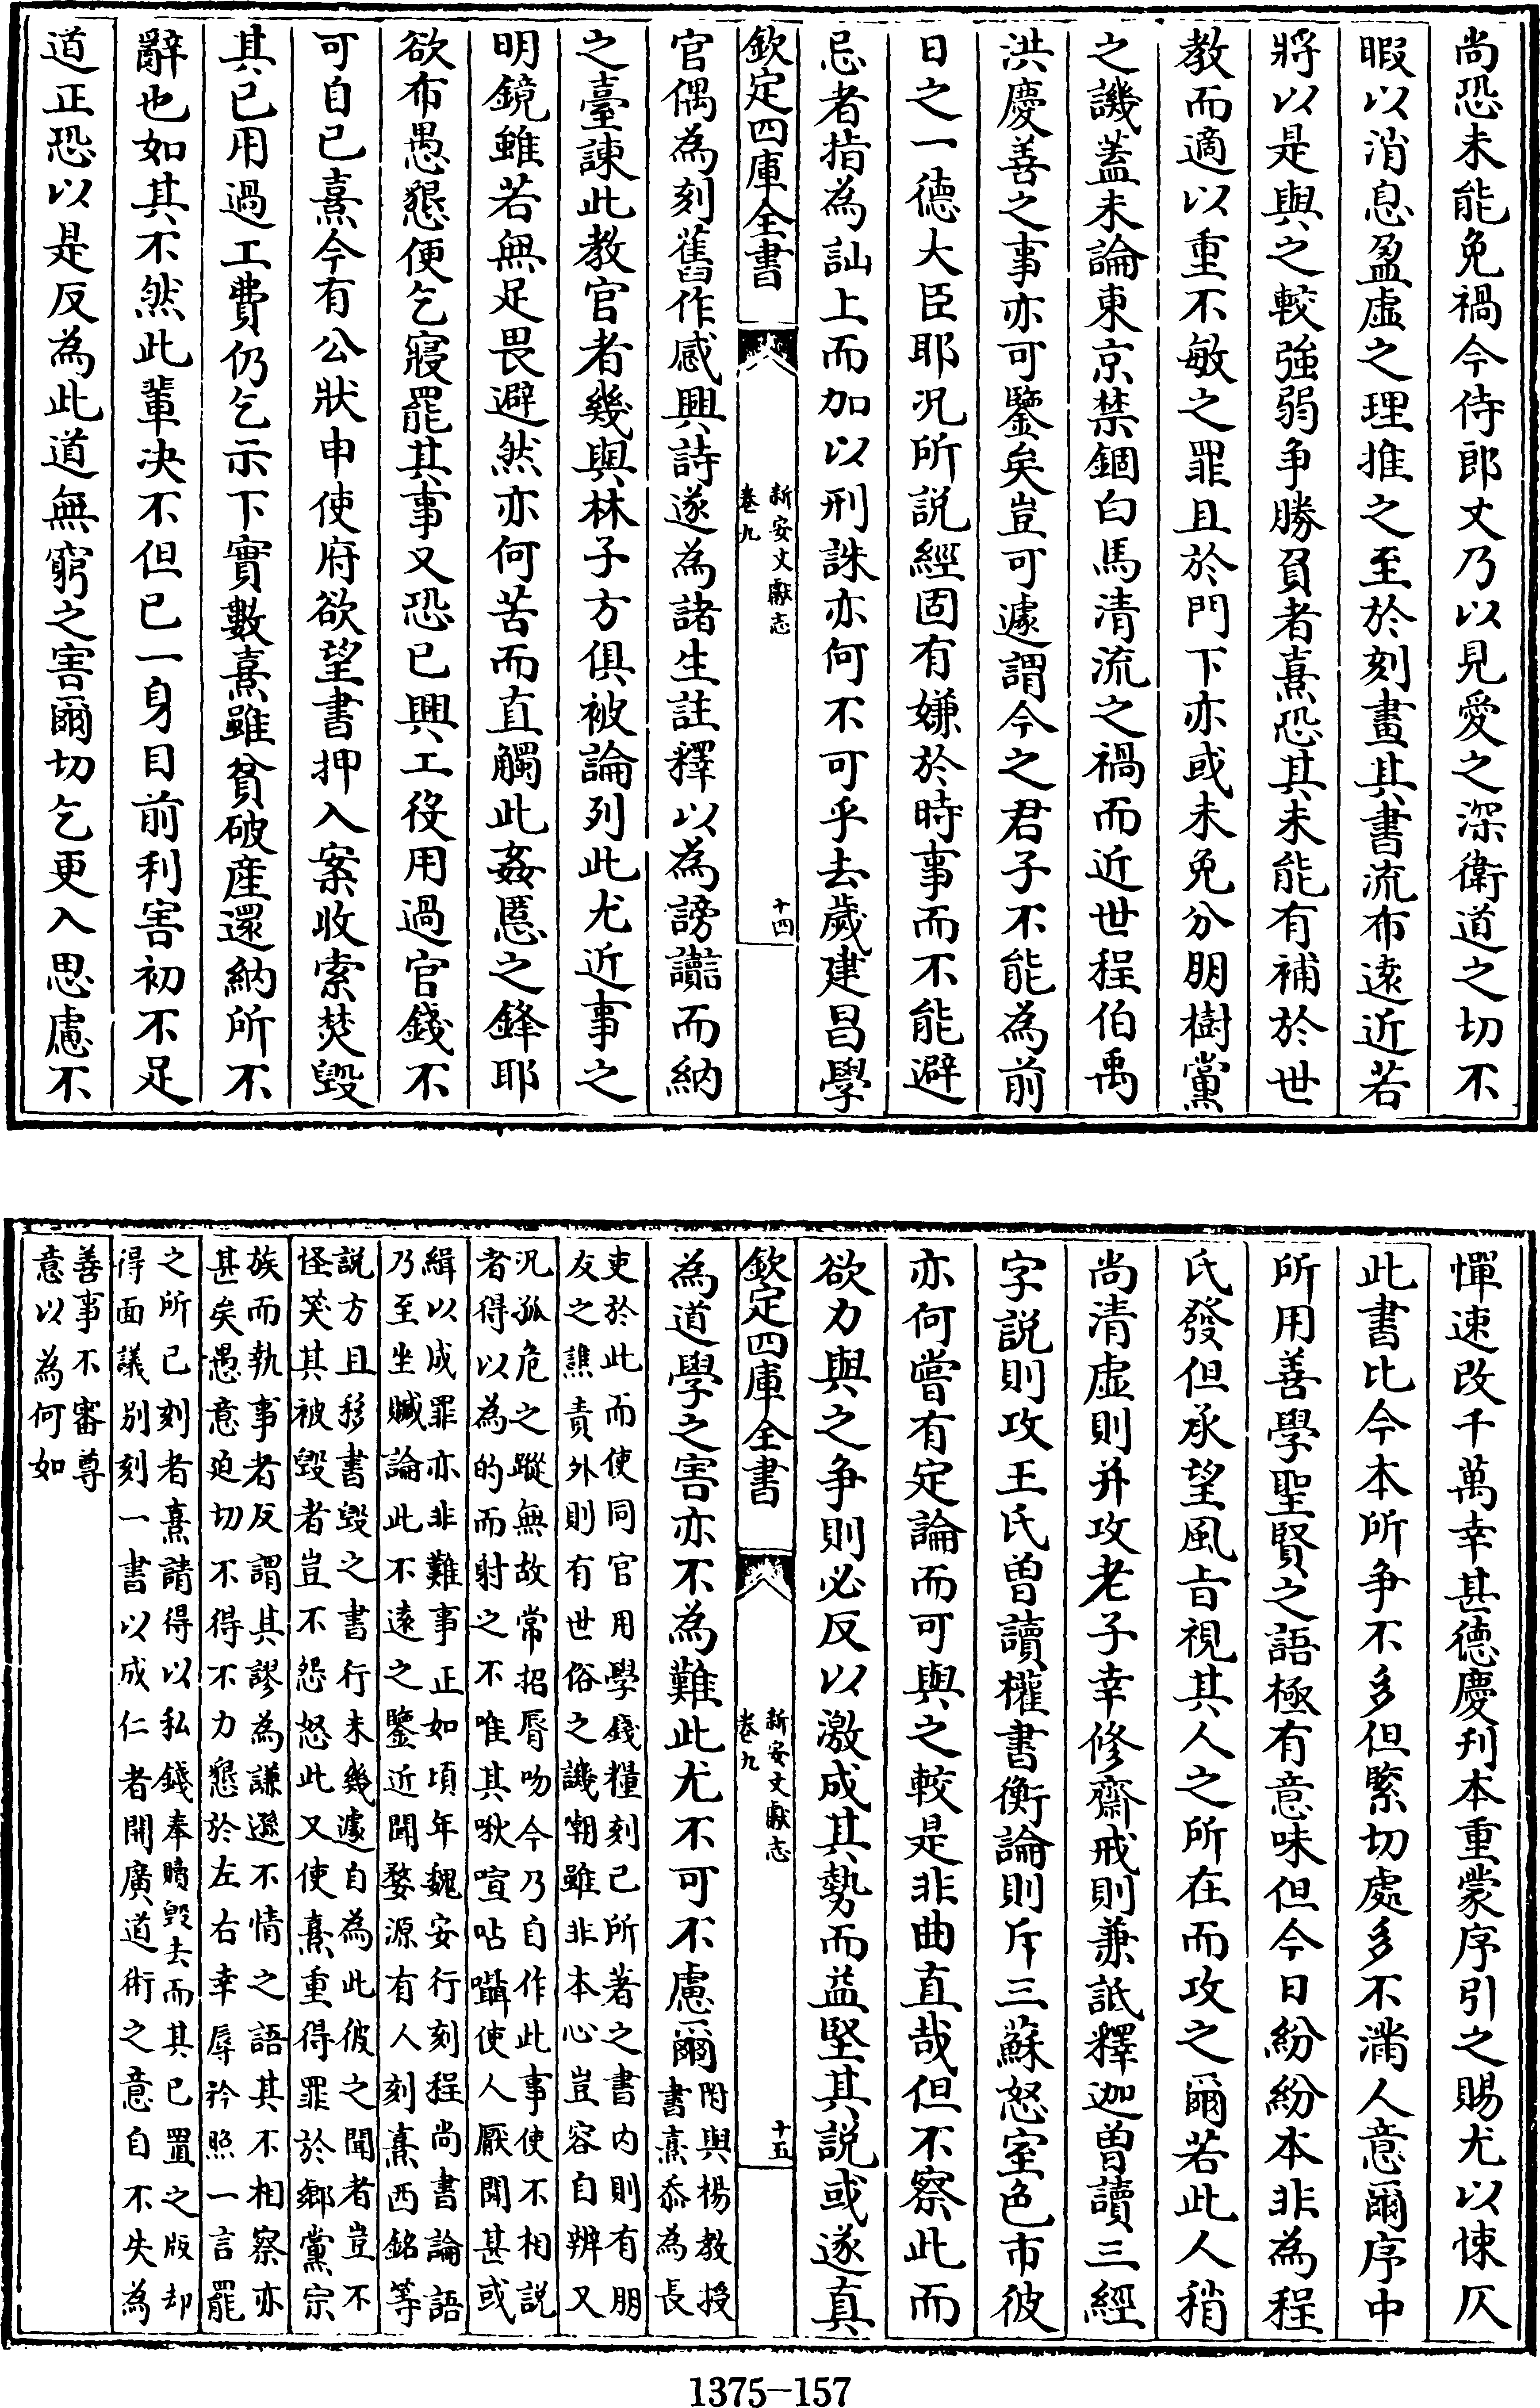 尚恐未能免禍今侍郎丈乃以見愛之深衛道之切不
暇以消息盈虛之理推之至於刻畫其書流布遠近若
將以是與之較強弱争勝負者熹恐其未能有補於世
教而適以重不敏之罪且於門下亦或未免分朋樹黨
之譏蓋未論東京禁錮白馬清流之禍而近世程伯禹
洪慶善之事亦可鑒矣豈可遽謂今之君子不能為前
日之一德大臣耶况所説經固有嫌於時事而不能避
忌者指為訕上而加以刑誅亦何不可乎去歲建昌學
欽定四庫全書
新安文獻志
卷九
十四
官偶為刻舊作感興詩遂為諸生註釋以為謗讟而納
之臺諫此教官者幾與林子方俱被論列此尤近事之
明鏡雖若無足畏避然亦何苦而直觸此姦慝之鋒耶
欲布愚懇便乞寢罷其事又恐已興工役用過官錢不
可自已熹今有公狀申使府欲望書押入案收索焚毀
其已用過工費仍乞示下實數熹雖貧破産還納所不
辭也如其不然此輩决不但已一身目前利害初不足
道正恐以是反為此道無窮之害爾切乞更入思慮不
憚速改千萬幸甚德慶刋本重蒙序引之賜尤以悚仄
此書比今本所争不多但緊切處多不滿人意爾序中
所用善學聖賢之語極有意味但今日紛紛本非為程
氏發但承望風旨視其人之所在而攻之爾若此人稍
尚清虛則并攻老子幸修齋戒則兼詆釋迦曽讀三經
字説則攻王氏曽讀權書衡論則斥三蘇怒室色市彼
亦何嘗有定論而可與之較是非曲直哉但不察此而
欲力與之争則必反以激成其勢而益堅其説或遂真
欽定四庫全書
新安文獻志
卷九
十五
為道學之害亦不為難此尤不可不慮爾
附與楊教授
書熹忝為長
吏於此而使同官用學錢糧刻己所著之書内則有朋
友之譙責外則有世俗之譏嘲雖非本心豈容自辨又
况孤危之蹤無故常招脣吻今乃自作此事使不相説
者得以為的而射之不唯其啾喧呫囁使人厭聞甚或
緝以成罪亦非難事正如頃年魏安行刻程尚書論語
乃至坐贓論此不遠之鑒近聞婺源有人刻熹西銘等
説方且移書毀之書行未幾遽自為此彼之聞者豈不
怪笑其被毀者豈不怨怒此又使熹重得罪於鄉黨宗
族而執事者反謂其謬為謙遜不情之語其不相察亦
甚矣愚意迫切不得不力懇於左右幸辱矜照一言罷
之所已刻者熹請得以私錢奉贖毀去而其已置之版却
得面議別刻一書以成仁者開廣道術之意自不失為
善事不審尊
意以為何如
1375-157